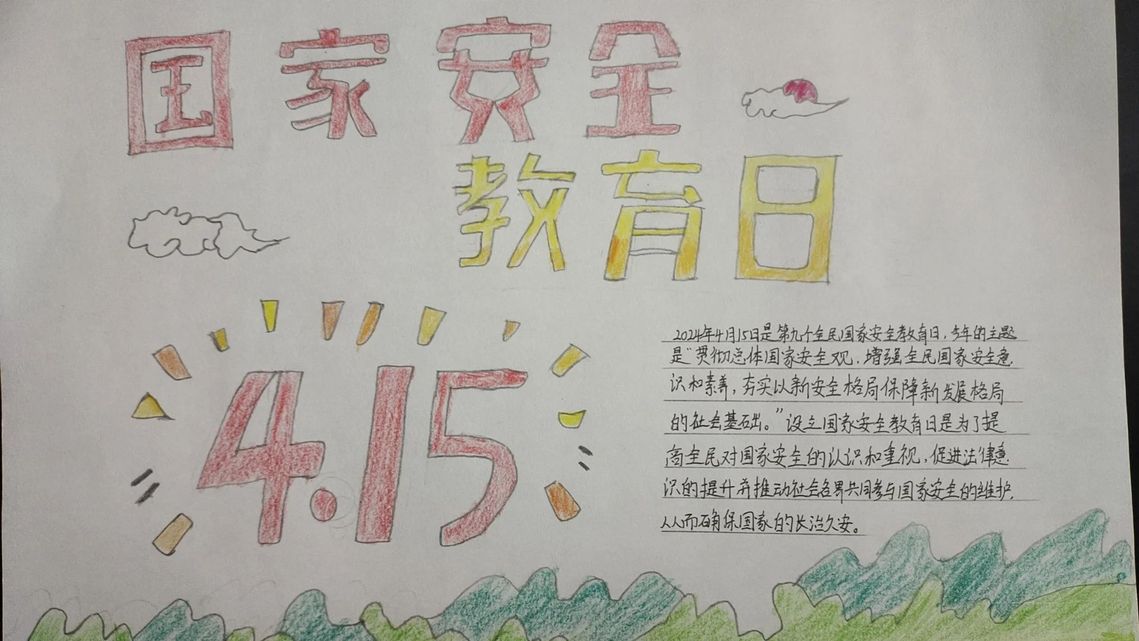 国家安全
教育日
4.15
2024年4月15日是第九个全民国家安全教育日，今年的主题
是“贯彻总体国家安全观，增强全民国家安全意
识和素养，夯实以新安全格局保障新发展格局
的社会基础出。”设立国家安全教育日是为了提
高全民对国家安全的认识和重视，促进法律意
识的提升并推动社会各界共同参与国家安全的维护，
从而确保国家的长治久安。